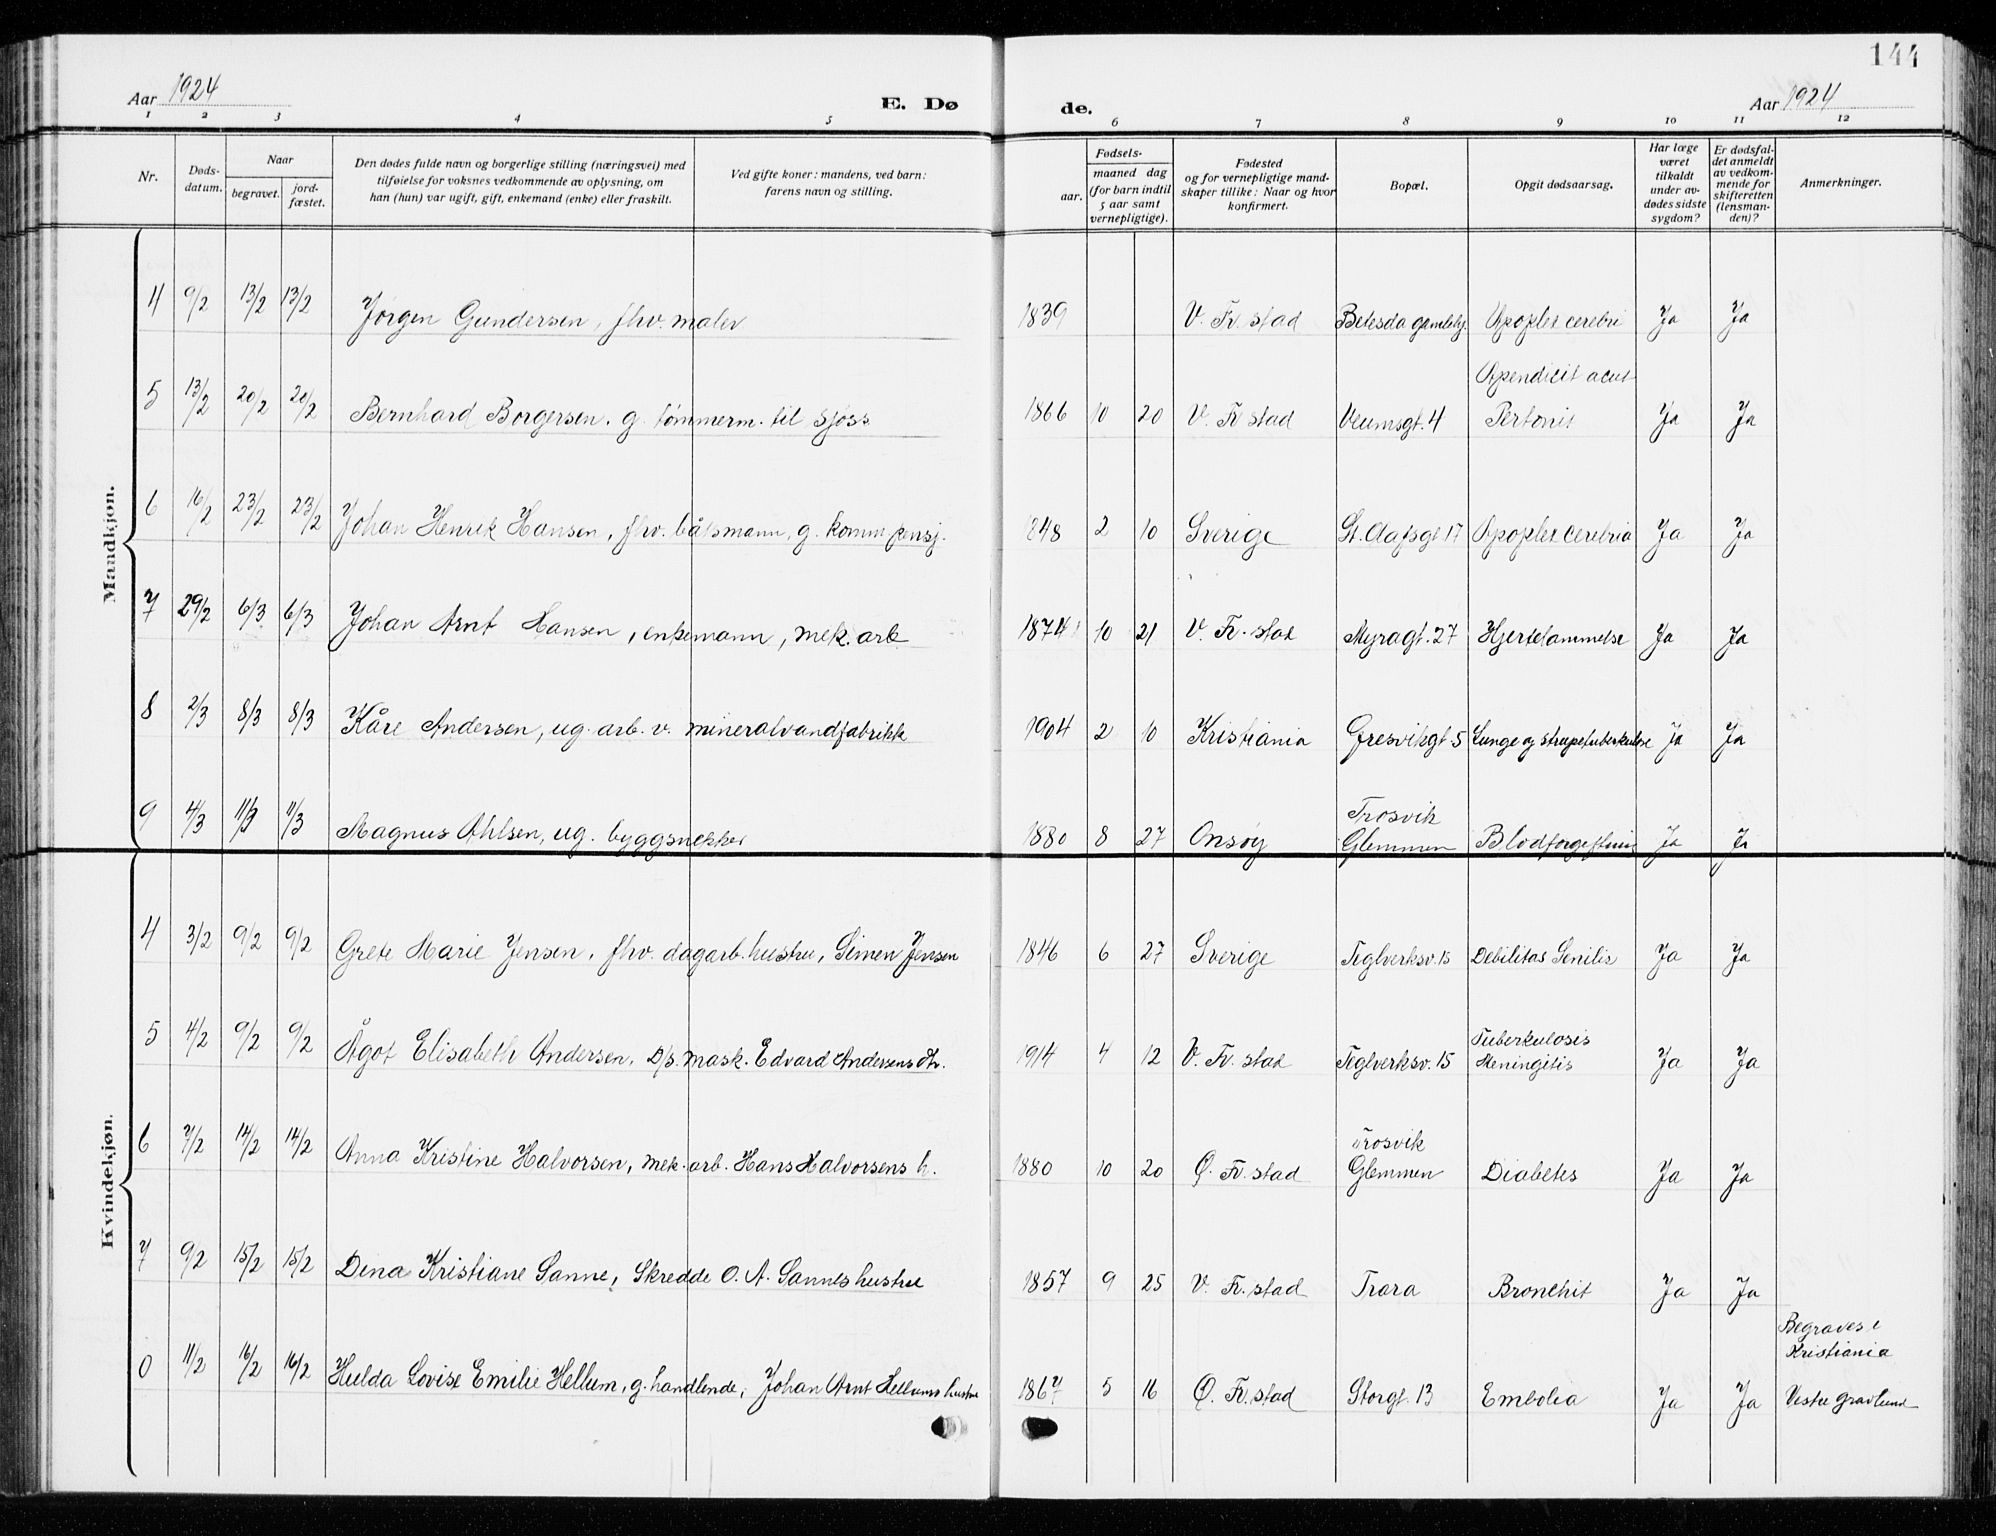 144
Aar 1924
E. Dø
de.
Aar 1924
1 2 3 4 5 6 7 8 9 10 11 12
Nr.
Døds-
datum.
Naar
begravet.
jord-
fæstet.
Den dødes fulde navn og borgerlige stilling (næringsvei) med
tilføielse for voksnes vedkommende av oplysning, om
han (hun) var ugift, gift, enkemand (enke) eller fraskilt.
Ved gifte koner: mandens, ved barn:
farens navn og stilling.
Fødsels-
aar.
maaned dag
(for barn indtil
5 aar samt
vernepligtige).
Fødested
og for vernepligtige mand-
skaper tillike: Naar og hvor
konfirmert.
Bopæl.
Opgit dødsaarsag.
Har læge
været
tilkaldt
under av-
dødes sidste
sygdom?
Er dødsfal-
det anmeldt
av vedkom-
mende for
skifteretten
(lensman-
den)?
Anmerkninger.
Mandkjøn.
4 9/2 13/2 13/2 Jørgen Gundersen, fhv. maler 1839 V. Fr. stad Betesda gamlehj. Apoplex cerebri Ja Ja
Apendicit acut
5 13/2 20/2 20/2 Bernhard Borgersen. g. tømmerm. til sjøss 1866 10 20 V. Fr stad Veumsgt. 4 Pertonit Ja Ja
6 16/2 23/2 23/2 Johan Henrik Hansen, fhv. båtsmann, g. komm. pensj. 1848 2 10 Sverige St. Olafsgt. 17 Apoplex cerebria Ja Ja
7 29/2 6/3 6/3 Johan Arnt Hansen, enkemann, mek. arb 1874 10 21 V. Fr. stad Myragt. 27 Hjertelammelse Ja Ja
8 2/3 8/3 8/3 Kåre Andersen, ug. arb. v. mineralvandfabrikk 1904 2 10 Kristiania Gresvikgt 5 Lunge og strupetuberkulose Ja Ja
Trosvik
9 4/3 11/3 11/3 Magnus Ahlsen, ug. byggsnekker 1880 8 27 Onsøy Glemmen Blodforgiftning Ja Ja
Kvindekjøn.
4 3/2 9/2 9/2 Grete Marie Jensen, fhv. dagarb. hustru, Simen Jensen 1846 6 27 Sverige Teglverksv. 15 Debilitas Senilis Ja Ja
Tuberkulosis
5 4/2 9/2 9/2 Ågot Elisabeth Andersen, D/s. mask. Edvard Andersens dtr. 1914 4 12 V. Fr. stad Teglverksv. 15 Meningitis Ja Ja
Trosvik
6 7/2 14/2 14/2 Anna Kristine Halvorsen, mek. arb. Hans Halvorsens h. 1880 10 20 Ø. Fr. stad Glemmen Diabetes Ja Ja
7 9/2 15/2 15/2 Dina Kristiane Sanne, Skredde O. A. Sannes hustru 1857 9 25 V. Fr. stad Trara Bronchit Ja Ja
Begraves i
Kristiania
11/2 16/2 16/2 Hulda Lovise Emilie Hellum, g. handlende, Johan Arnt Hellums hustru 1867 5 16 Ø. Fr. stad Storgt. 13 Embolia Ja Ja Vestre gravlund